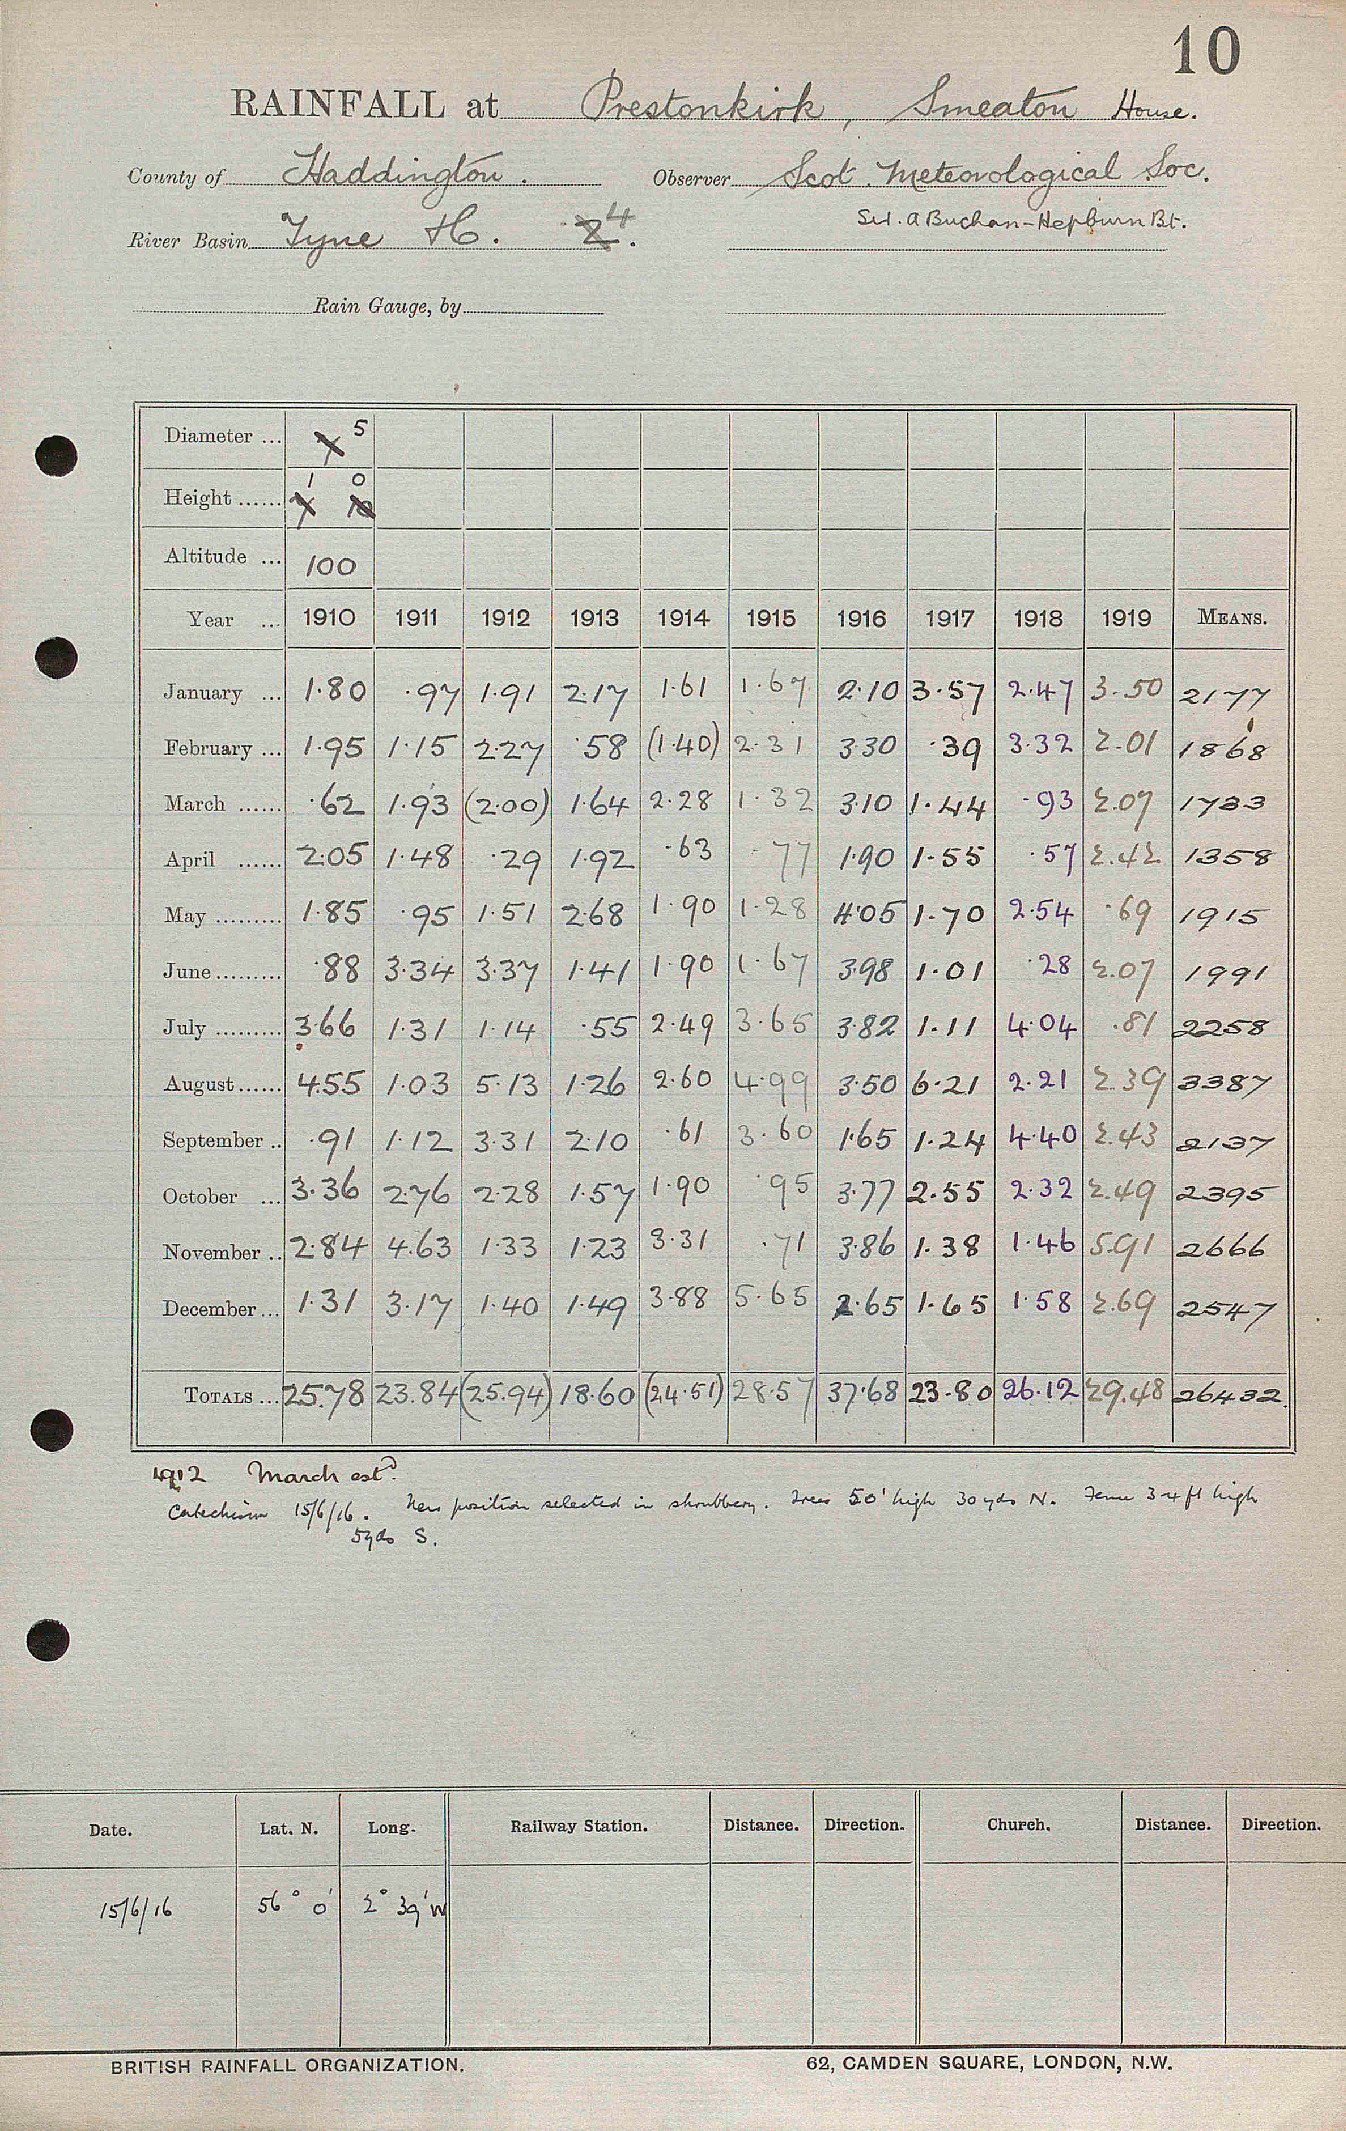 10
RAINFALL at Prestonkirk, Smeaton House.
County of Haddington. Observer Scot. Meteorological Soc.
River Basin Tyne H. 4. Sir. A Buchan-Hepburn Bt.
Rain Gauge, by
Diameter ... 5
Height ...... 1 0
Altitude ... 100
Year ... 1910 1911 1912 1913 1914 1915 1916 1917 1918 1919 MEANS.
January ... 1.80 .97 1.91 2.17 1.61 1.67 2.10 3.57 2.47 3.50 2177
February ... 1.95 1.15 2.27 .58 (1.40) 2.31 3.30 .39 3.32 2.01 1868
March ...... .62 1.93 (2.00) 1.64 2.28 1.32 3.10 1.44 .93 2.07 1733
April ...... 2.05 1.48 .29 1.92 .63 .77 1.90 1.55 .57 2.42 1358
May ......... 1.85 .95 1.51 2.68 1.90 1.28 4.05 1.70 2.54 .69 1915
June ......... .88 3.34 3.37 1.41 1.90 1.67 3.98 1.01 .28 2.07 1991
July ......... 3.66 1.31 1.14 .55 2.49 3.65 3.82 1.11 4.04 .81 2258
August ...... 4.55 1.03 5.13 1.26 2.60 4.99 3.50 6.21 2.21 2.39 3387
September .. .91 1.12 3.31 2.10 .61 3.60 1.65 1.24 4.40 2.43 2137
October ... 3.36 2.76 2.28 1.57 1.90 .95 3.77 2.55 2.32 2.49 2395
November .. 2.84 4.63 1.33 1.23 3.31 .71 3.86 1.38 1.46 5.91 2666
December ... 1.31 3.17 1.40 1.49 3.88 5.65 2.65 1.65 1.58 2.69 2547
TOTALS ... 25.78 23.84 (25.94) 18.60 (24.51) 28.57 37.68 23.80 26.12 29.48 26432
1912 March estd.
Catechism 15/6/16. New position selected in shrubbery. Trees 50' high 30 yds N. Fence 3 4 ft high
5 yds S.
Date. Lat. N. Long. Railway Station. Distance. Direction. Church. Distance. Direction.
15/6/16 56° 0' 2° 39' W
BRITISH RAINFALL ORGANIZATION. 62, CAMDEN SQUARE, LONDON, N.W.